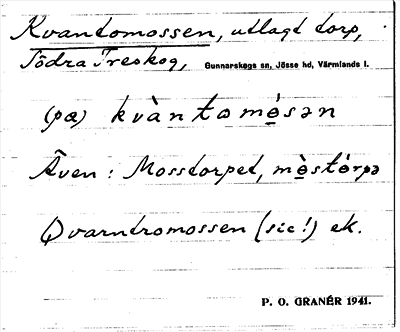 Kvantomossen, utlagt torp,
Södra Treskog, Gunnarskogs sn, Jösse hd, Värmlands l.
(pæ) kvàntomèsən
Även: Mosstorpet, mèstórpə
Qvarntromossen (sic!) ek.
P. O. GRANÉR 1941.